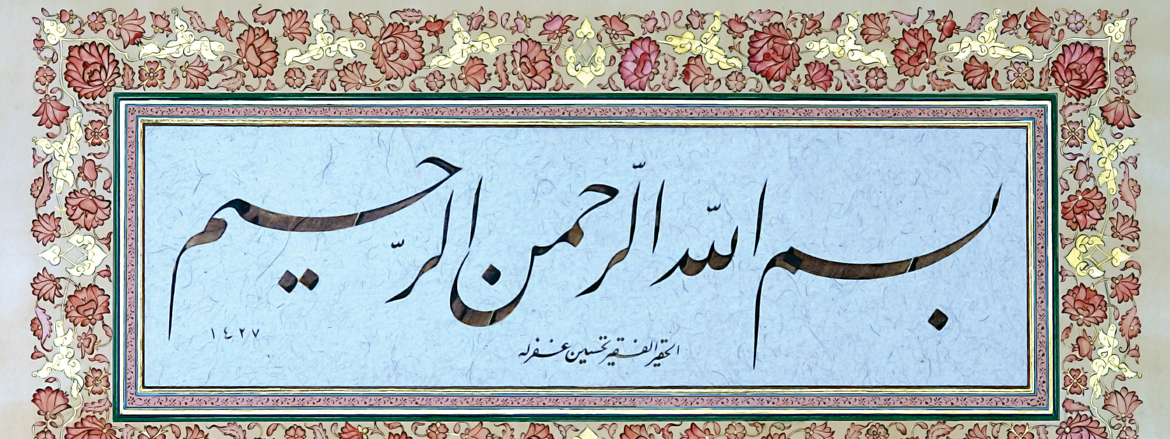 بسم الله الرحمن الرحيم
الحقير الفقير تحسين غفرله
١٤٢٧